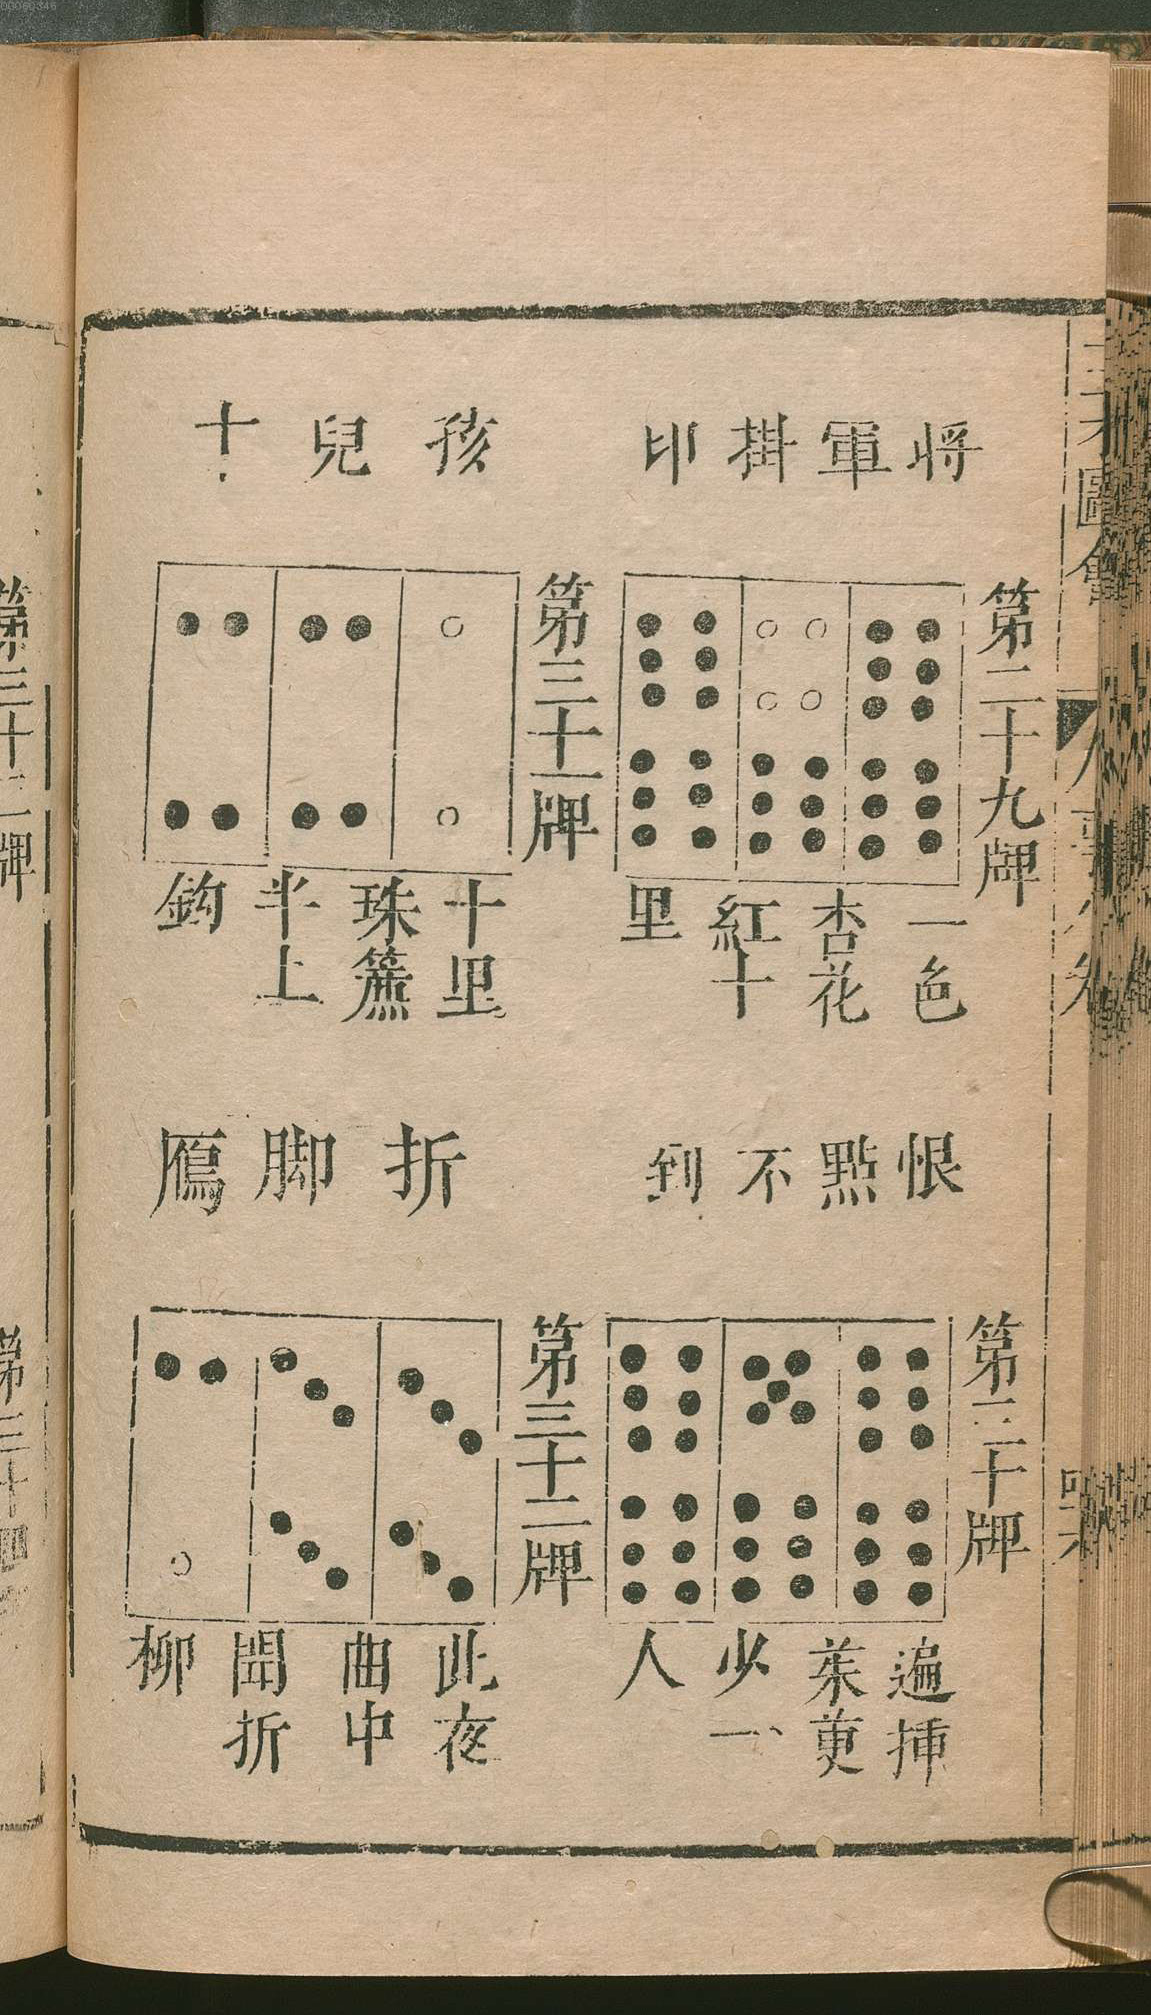 三才圖會
人事八卷
將軍掛印
第二十九牌
一色
杏花
紅十
里
孩兒十
第三十一牌
十里
珠簾
半上
鈎
恨點不到
第三十牌
遍挿
茱萸
少一
人
折脚鴈
第三十二牌
此夜
曲中
聞折
柳
第三十三牌
00060346